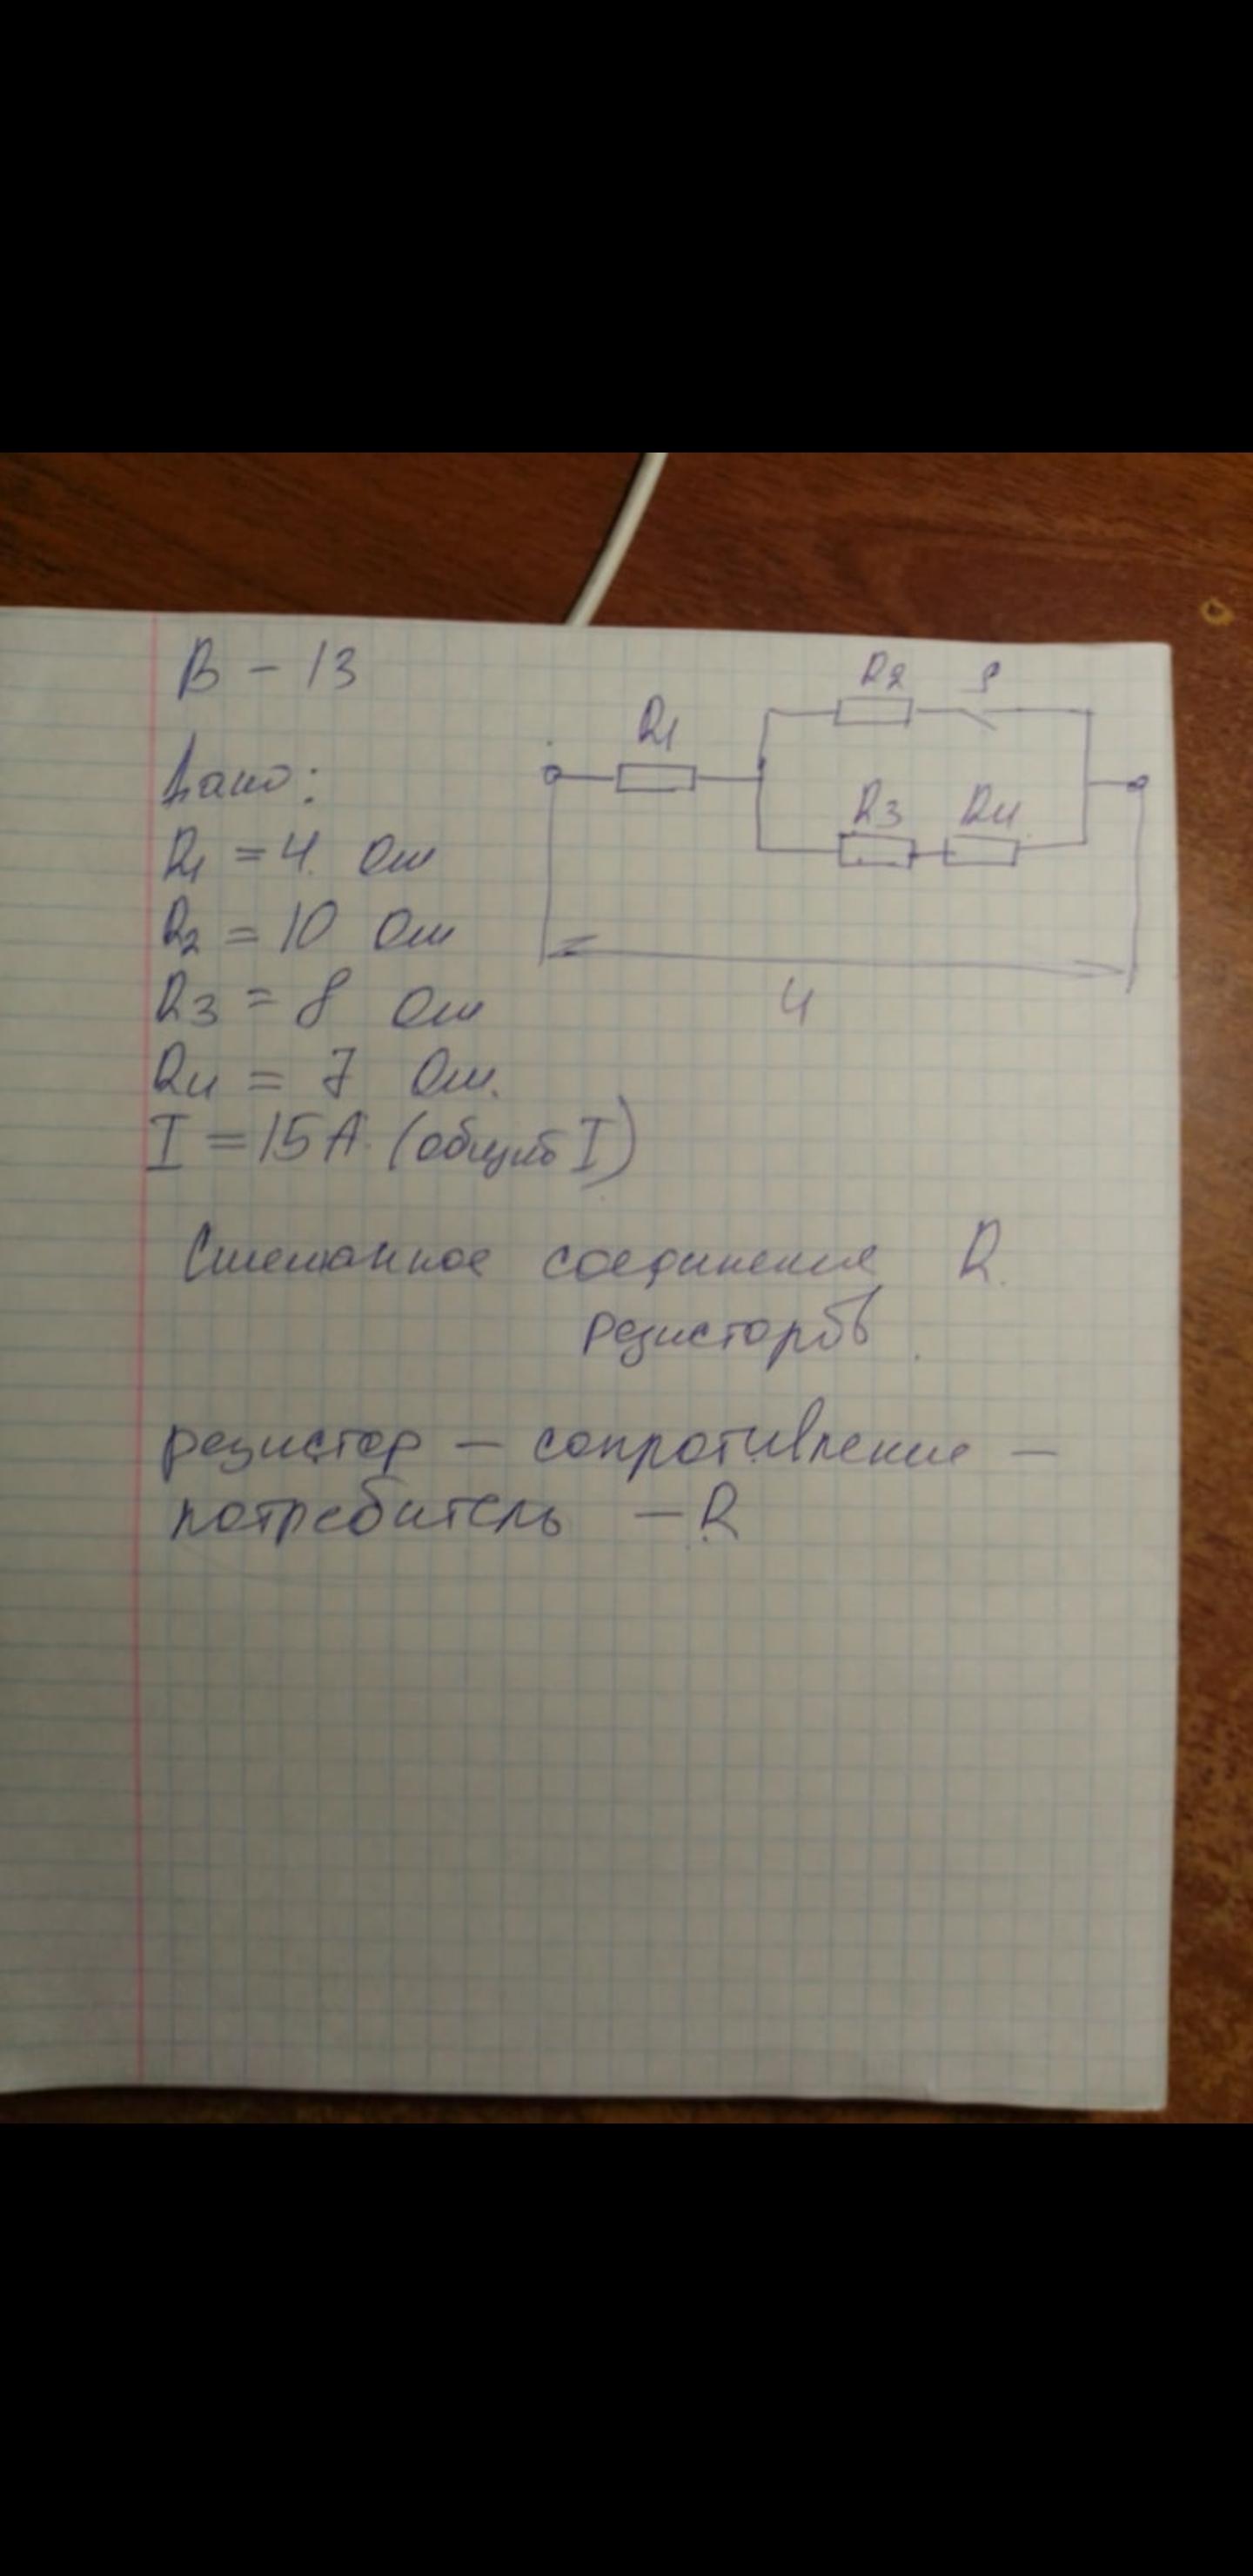 В - 13
R2 S
R1
Дано:
R3 R4
R1 = 4 Ом
R2 = 10 Ом
R3 = 8 Ом
U
R4 = 7 Ом.
I = 15 А. (общий I)
Смешанное соединение R
резисторов.
резистор — сопротивление —
потребитель — R